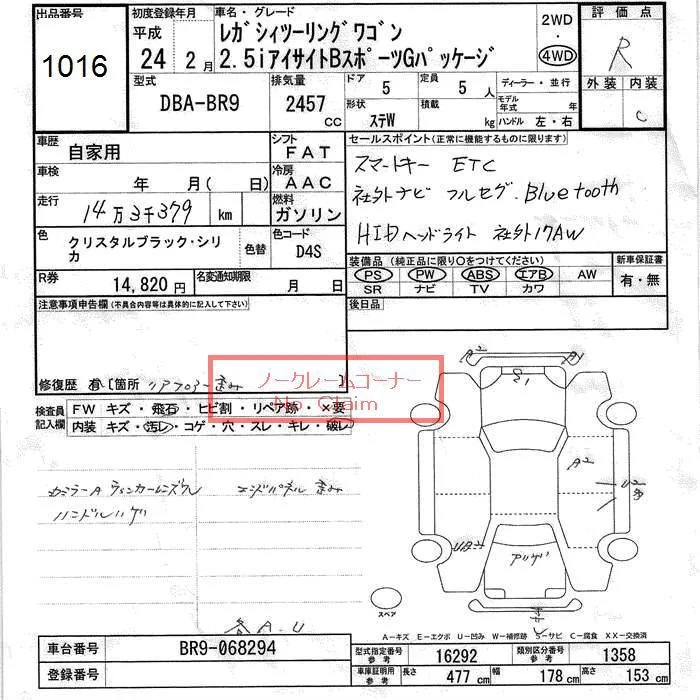 出品番号
1016
初度登録年月
平成
24 2月
車名・グレード
レガシィツーリングワゴン
2.5iアイサイトBスポーツGパッケージ
2WD
・
4WD
評価点
R
外装 内装
C
型式
DBA-BR9
排気量
2457 CC
ドア 5
定員 5 人
形状 ステW
積載 kg
ディーラー・並行
モデル年式 年
ハンドル 左・右
車歴 自家用
シフト FAT
車検 年 月( 日)
冷房 AAC
走行 14万3千379 km
燃料 ガソリン
色 クリスタルブラック・シリカ
色替
色コード D4S
R券 14,820円
名変通知期限 月 日
セールスポイント(正常に機能するものに限ります)
スマートキー ETC
社外ナビ フルセグ.Bluetooth
HIDヘッドライト 社外17AW
装備品 (純正品に限り○をつけてください)
PS PW ABS エアB AW
SR ナビ TV カワ
新車保証書
有・無
後日品
注意事項申告欄(不具合内容等は具体的に記入して下さい)
修復歴 有 [箇所 リアフロアー歪み ]
ノークレームコーナー
No Claim
検査員記入欄
FW キズ・飛石・ヒビ割・リペア跡・×要
内装 キズ・汚レ・コゲ・穴・スレ・キレ・破レ
エンドパネル 歪み
ハンドルハゲ
各A.U
A2
A1
S1
A2
U2
UB2
スペア
A-キズ E-エクボ U-凹み W-補修跡 S-サビ C-腐食 XX-交換済
車台番号 BR9-068294
登録番号
型式指定番号 参考 16292
類別区分番号 参考 1358
車庫証明用 参考 長さ 477 cm 幅 178 cm 高さ 153 cm